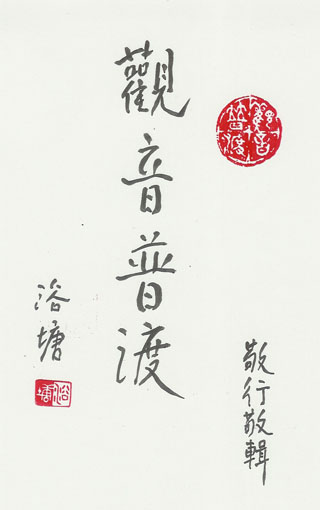 觀音普渡
敬行敬輯
觀音普渡
浴塘
浴塘